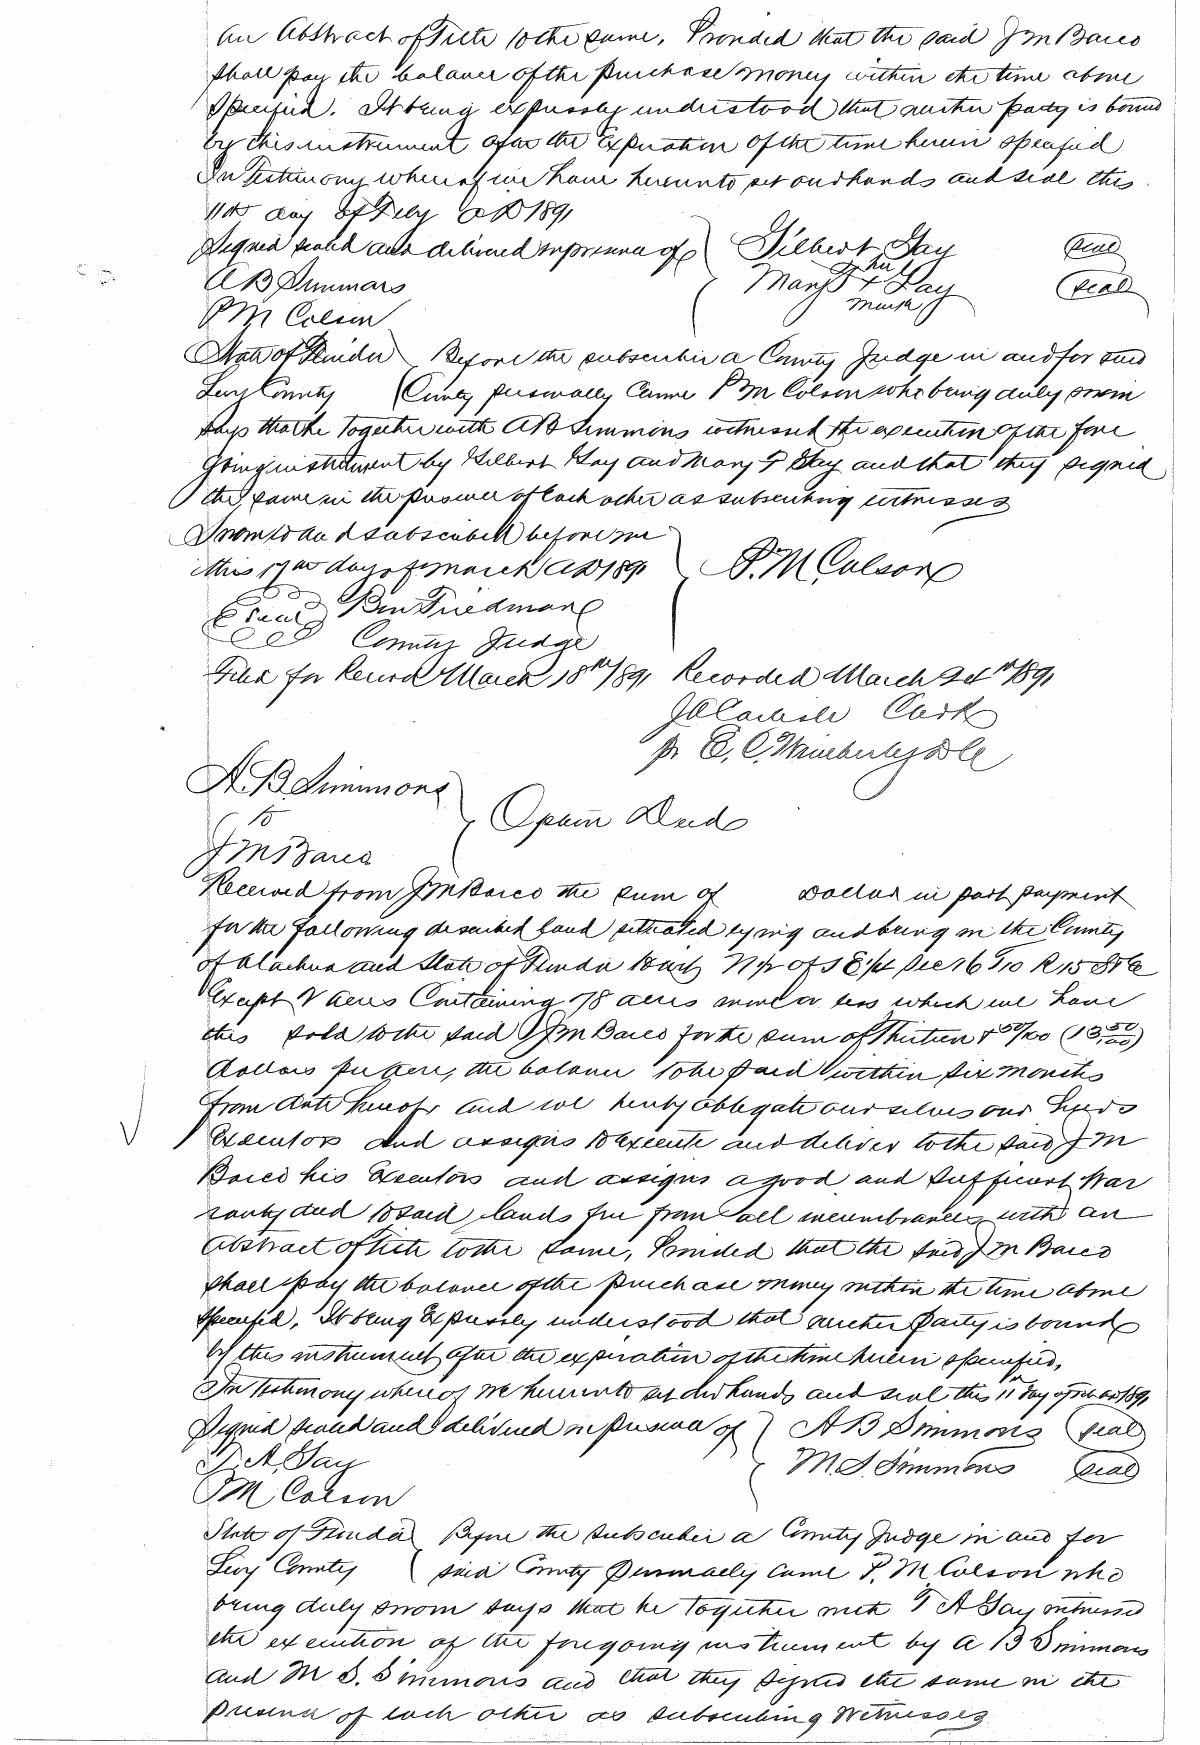 An Abstract of Title to the same, Provided that the said J M Barco
shall pay the balance of the purchase money within the time above
specified. It being expressly understood that neither party is bound
by this instrument after the Expiration of the time herein specified
In Testimony whereof we have hereunto set our hands and seal this
11th day of Feby AD 1891
Signed sealed and delivered in presence of Gilbert Gay seal
A B Simmons Mary F + Gay seal
mark
P M Colson
State of Florida Before the subscriber a County Judge in and for said
Levy County County personally came P M Colson who being duly sworn
says that he together with A B Simmons witnessed the execution of the fore
going instrument by Gilbert Gay and Mary F Gay and that they signed
the same in the presence of each other as subscribing witnesses
Sworn to and subscribed before me
this day of March AD 1891 P. M. Colson
Seal Ben Friedman
County Judge
Filed for Record March 18th/891 Recorded March 24th 1891
J A Carlisle Clerk
pr E. C. Wimberly D C
A. B. Simmons
to Deed
J M Barco
Received from J M Barco the sum of Dollars in part payment
for the following described land situated lying and being in the County
of Alachua and State of Florida to wit N ½ of S E ¼ Sec 16 T 10 R 15 S & E
Except 2 acres Containing 78 acres more or less which we have
this sold to the said J M Barco for the sum of Thirteen & 50/100 (13 50/100)
dollars per acre, the balance to be paid within six months
from date hereof and we hereby obligate ourselves our heirs
Executors and assigns to execute and deliver to the said J M
Barco his Executors and assigns a good and sufficient War
ranty deed to said lands free from all incumbrances with an
Abstract of Title to the same, Provided that the said J M Barco
shall pay the balance of the purchase money within the time above
specified, It being Expressly understood that neither party is bound
by this instrument after the expiration of the time herein specified,
In Testimony whereof we hereunto set our hands and seal this 11th day of Feb AD 1891
Signed sealed and delivered in presence of A B Simmons seal
T. A. Gay M. S. Simmons seal
P M Colson
State of Florida Before the subscriber a County Judge in and for
Levy County said County personally came P. M Colson who
being duly sworn says that he together with T A Gay witnessed
the execution of the foregoing instrument by A B Simmons
and M S. Simmons and that they signed the same in the
presence of each other as subscribing Witnesses